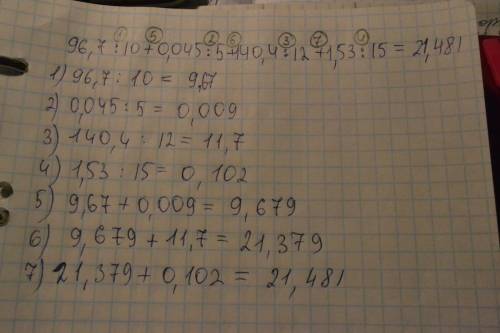 ① ⑤ ② ⑥ ③ ⑦ ①
96,7:10+0,045:5+140,4:12+1,53:15=21,481
1) 96,7 : 10 = 9,67
2) 0,045 : 5 = 0,009
3) 140,4 : 12 = 11,7
4) 1,53 : 15 = 0,102
5) 9,67 + 0,009 = 9,679
6) 9,679 + 11,7 = 21,379
7) 21,379 + 0,102 = 21,481